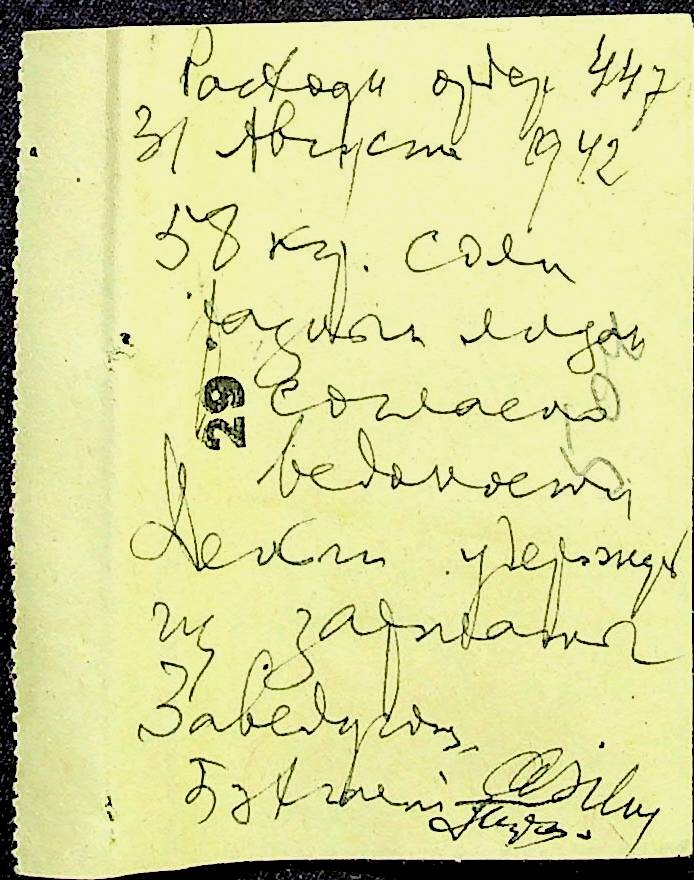 Расходн ордер 447
31 Августа 1942
58 кг. соли
разным лицам
29
согласно
ведомости
Деньги удержать
из зарплаты
Заведующ.
Бухгалтер